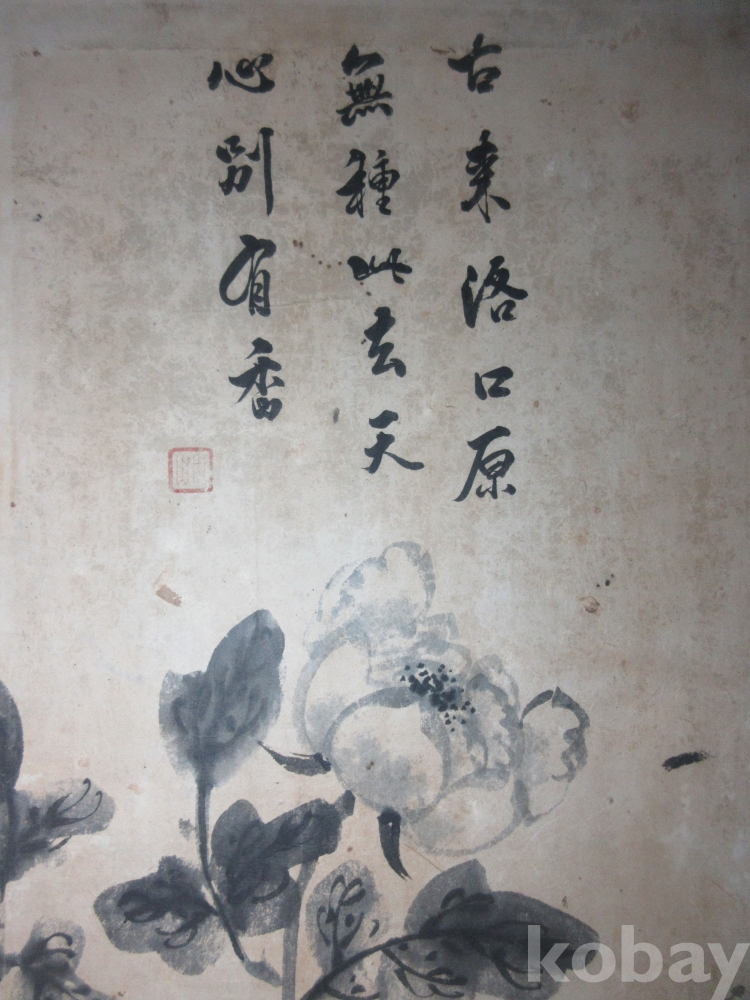 古来洛口原
無種此去天
心別有香
kobay